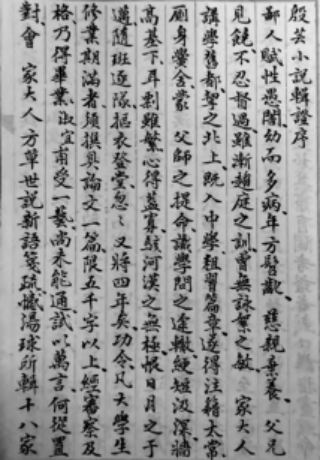 殷芸小說輯證序
鄙人賦性愚闇幼而多病年方髫齔慈親棄養父兄
見饒不忍督過雖漸趨庭之訓曾無詠絮之敏家大人
講學舊都挈之北上既入中學粗習篇章遂得注籍太常
廁身黌舍蒙父師之提命識學問之途轍綆短汲深牆
高基下耳剽雖繁心得蓋寡駭河漢之無極悵日月之于
邁隨班逐隊摳衣登堂忽忽又將四年矣功令凡大學生
修業期滿者須撰具論文一篇限五千字以上經審察及
格乃得畢業淑宜甫受一藝尚未能通試以萬言何從置
對會家大人方草世說新語箋疏憾湯球所輯十八家